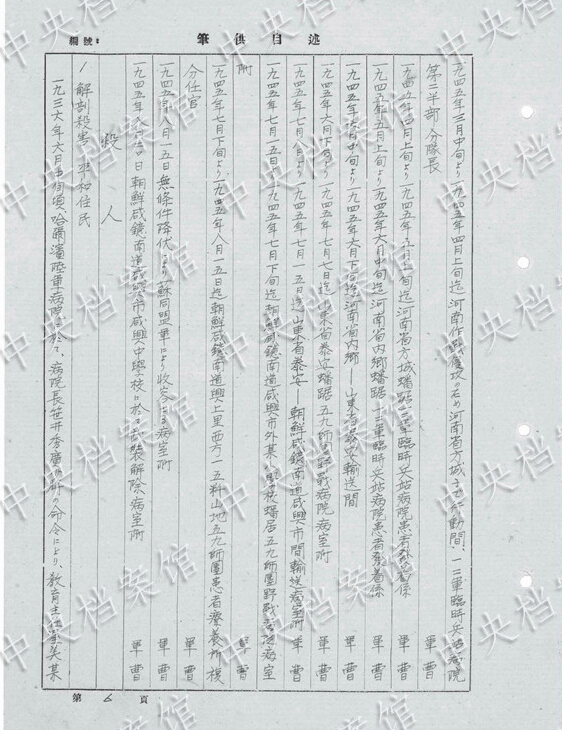 編號:
筆供自述
一九四五年三月中旬より一九四五年四月上旬迄河南作戦慶坎のため河南省方城まで行動間、一二軍臨時兵站病院
第二半部分隊長 軍曹
一九四五年四月上旬より一九四五年五月上旬迄河南省方城蟠踞一二軍臨時兵站病院患者療養係 軍曹
一九四五年五月上旬より一九四五年六月中旬迄河南省内郷蟠踞十二軍臨時兵站病院患者療養係 軍曹
一九四五年六月中旬より一九四五年六月下旬迄河南省内郷—山東省泰安輸送間 軍曹
一九四五年六月下旬より一九四五年七月 迄山東省泰安蟠踞五九師野戰病院病室附 軍曹
一九四五年七月八日より一九四五年七月一五日迄山東省泰安—朝鮮咸鏡南道咸興市間輸送病室附 軍曹
一九四五年七月一五日より一九四五年七月下旬迄朝鮮咸鏡南道咸興市外某 學校蟠居五九師團野戰病院病室
附 軍曹
一九四五年七月下旬より一九四五年八月一五日迄朝鮮咸鏡南道興上里西方一五粁山地五九師團患者療養所 模
分任官 軍曹
一九四五年八月一五日無條件降伏により蘇同盟軍により收容さる病室附 軍曹
一九四五年八月 日朝鮮咸鏡南道咸興市咸興中學校に於て武裝解除病室附 軍曹
殺人
1 解剖殺害 平和住民
一九三六年六月 頃哈爾濱陸軍病院に於て、病院長笹井秀 の命令により、教育主任軍美某
第6頁
中央档案馆